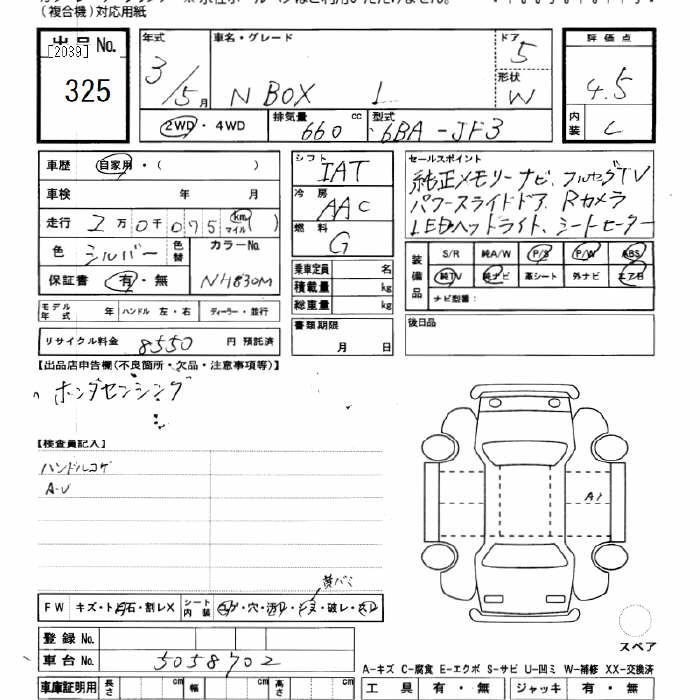 (複合機)対応用紙
出品No. [2039] 325
年式 3/5月 車名・グレード N BOX L ドア 5 形状 W
2WD・4WD 排気量 660 cc 型式 6BA-JF3
評価点 4.5 内装 C
車歴 自家用・( )
車検 年 月
走行 2万0千075 km マイル ( )
色 シルバー 色替 カラーNo. NH830M
保証書 有・無
モデル年式 年 ハンドル 左・右 ディーラー・並行
リサイクル料金 8550 円 預託済
シフト IAT
冷房 AAC
燃料 G
乗車定員 名
積載量 kg
総重量 kg
書類期限 月 日
セールスポイント
純正メモリーナビ、フルセグTV
パワースライドドア、Rカメラ
LEDヘッドライト、シートヒーター
装備品 S/R 純A/W P/S P/W ABS
純TV 純ナビ 革シート 外ナビ エアB
ナビ型番:
後日品
【出品店申告欄(不良箇所・欠品・注意事項等)】
ホンダセンシング
【検査員記入】
ハンドルコゲ
A-U
A1
黄バミ
FW キズ・ト 石・割レX シート内装 ・穴・ ・ ・破レ・
登録No.
車台No. 5058702
スペア
A-キズ C-腐食 E-エクボ S-サビ U-凹ミ W-補修 XX-交換済
車庫証明用 長さ cm 幅 cm 高さ cm 工具 有・無 ジャッキ 有・無